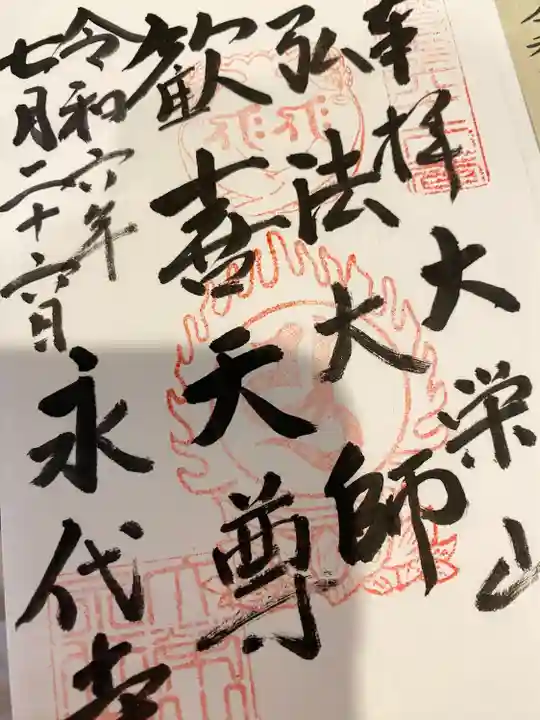 奉拝 大栄山
弘法大師
歓喜天尊
永代寺
令和六年
七月二十六日